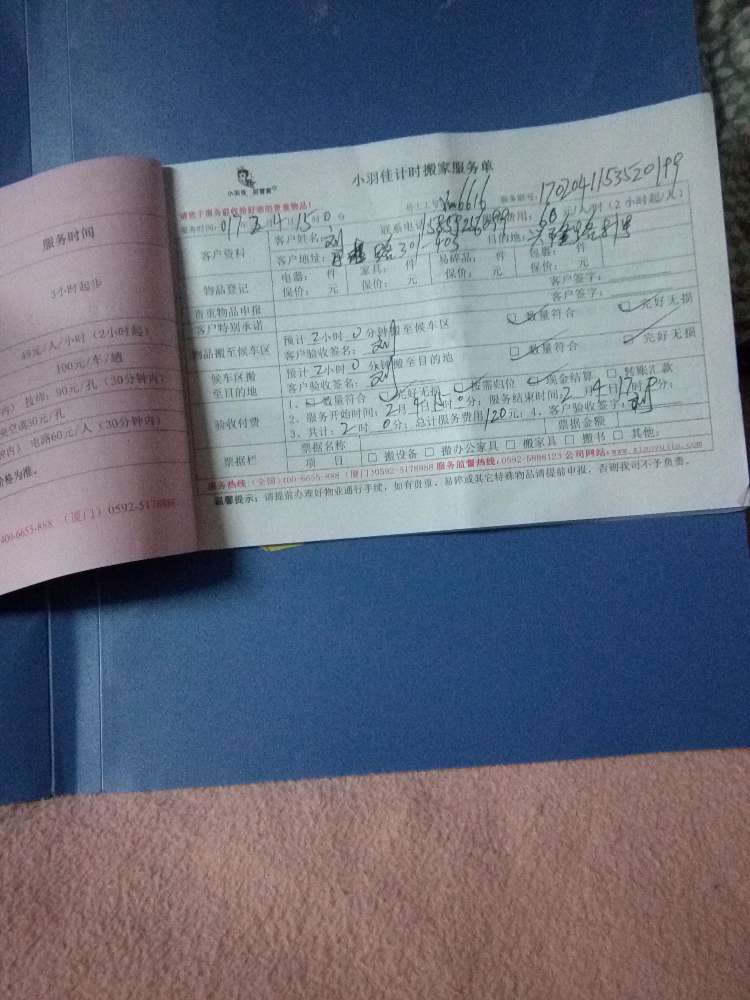 服务时间
3小时起步
49元/人/小时（2小时起）
100元/车/趟
技师：90元/孔（30分钟内）
空调30元/孔
电路60元/人（30分钟内）
价格为准。
400-6655-888 （厦门）0592-5178988
小羽佳计时搬家服务单
小羽佳
请您于服务前收拾好您的贵重物品！
员工工号 xm6616
服务单号：1702041153520199
客户资料
客户姓名：刘
联系电话
费用：60元/人/时（2小时起/人）
客户地址：
目的地：
物品登记
电器： 件 家具： 件 易碎品： 件 包裹： 件
保价： 元 保价： 元 保价： 元 保价： 元
贵重物品申报
客户签字：
客户特别承诺
客户签字：
物品搬至候车区
预计2小时0分钟搬至候车区
客户验收签名：刘
数量符合 完好无损
候车区搬至目的地
预计2小时0分钟搬至目的地
客户验收签名：刘
数量符合 完好无损
验收付费
1、数量符合 完好无损 按需归位 现金结算 转账汇款
2、服务开始时间：2月4日15时0分；服务结束时间：2月4日17时0分；
3、共计：2时0分；总计服务费用120元；4、客户验收签字：刘
票据栏
票据名称 票据金额
项 目 □ 搬设备 □ 搬办公家具 □ 搬家具 □ 搬书 □ 其他：
服务热线：(全国)400-6655-888 (厦门)0592-5178988 服务监督热线：0592-5886123 公司网站：www.xiaoyujia.com
温馨提示：请提前办理好物业通行手续，如有贵重、易碎或其它特殊物品请提前申报，否则我司不予负责。